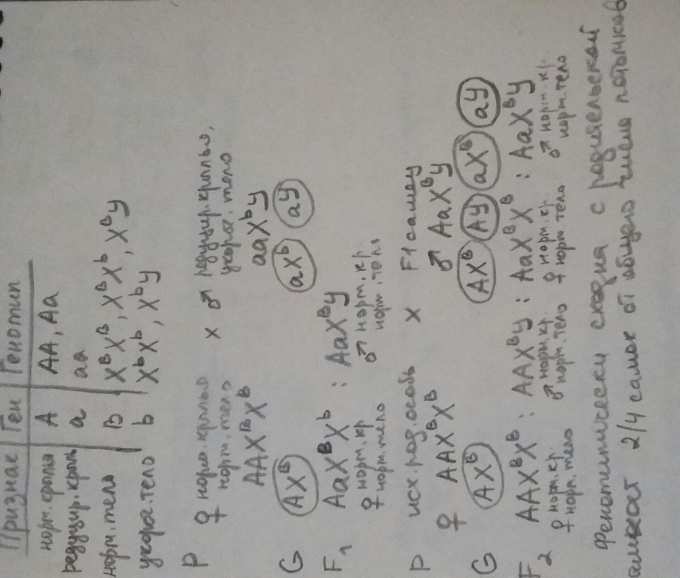 Признак | Ген | Генотип
норм. крылья | A | AA, Aa
редуцир. крыл | a | aa
норм. тело | B | XᴮXᴮ, XᴮXᵇ, XᴮY
укороч. тело | b | XᵇXᵇ, XᵇY
P ♀ норм. крылья x ♂ редуцир. крылья,
норм. тело укороч. тело
AAXᴮXᴮ aaXᵇY
G AXᴮ aXᵇ aY
F₁ AaXᴮXᵇ : AaXᴮY
♀ норм. кр. ♂ норм. кр.
норм. тело норм. тело
P исх. род. особь x F1 самец
♀ AAXᴮXᴮ ♂ AaXᴮY
G AXᴮ AXᴮ AY aXᴮ aY
F₂ AAXᴮXᴮ : AAXᴮY : AaXᴮXᴮ : AaXᴮY
♀ норм. кр. ♂ норм. кр. ♀ норм. кр. ♂ норм. кр.
норм. тело норм. тело норм. тело норм. тело
Фенотипически сходна с родительской
самкой 2/4 самок от общего числа потомков